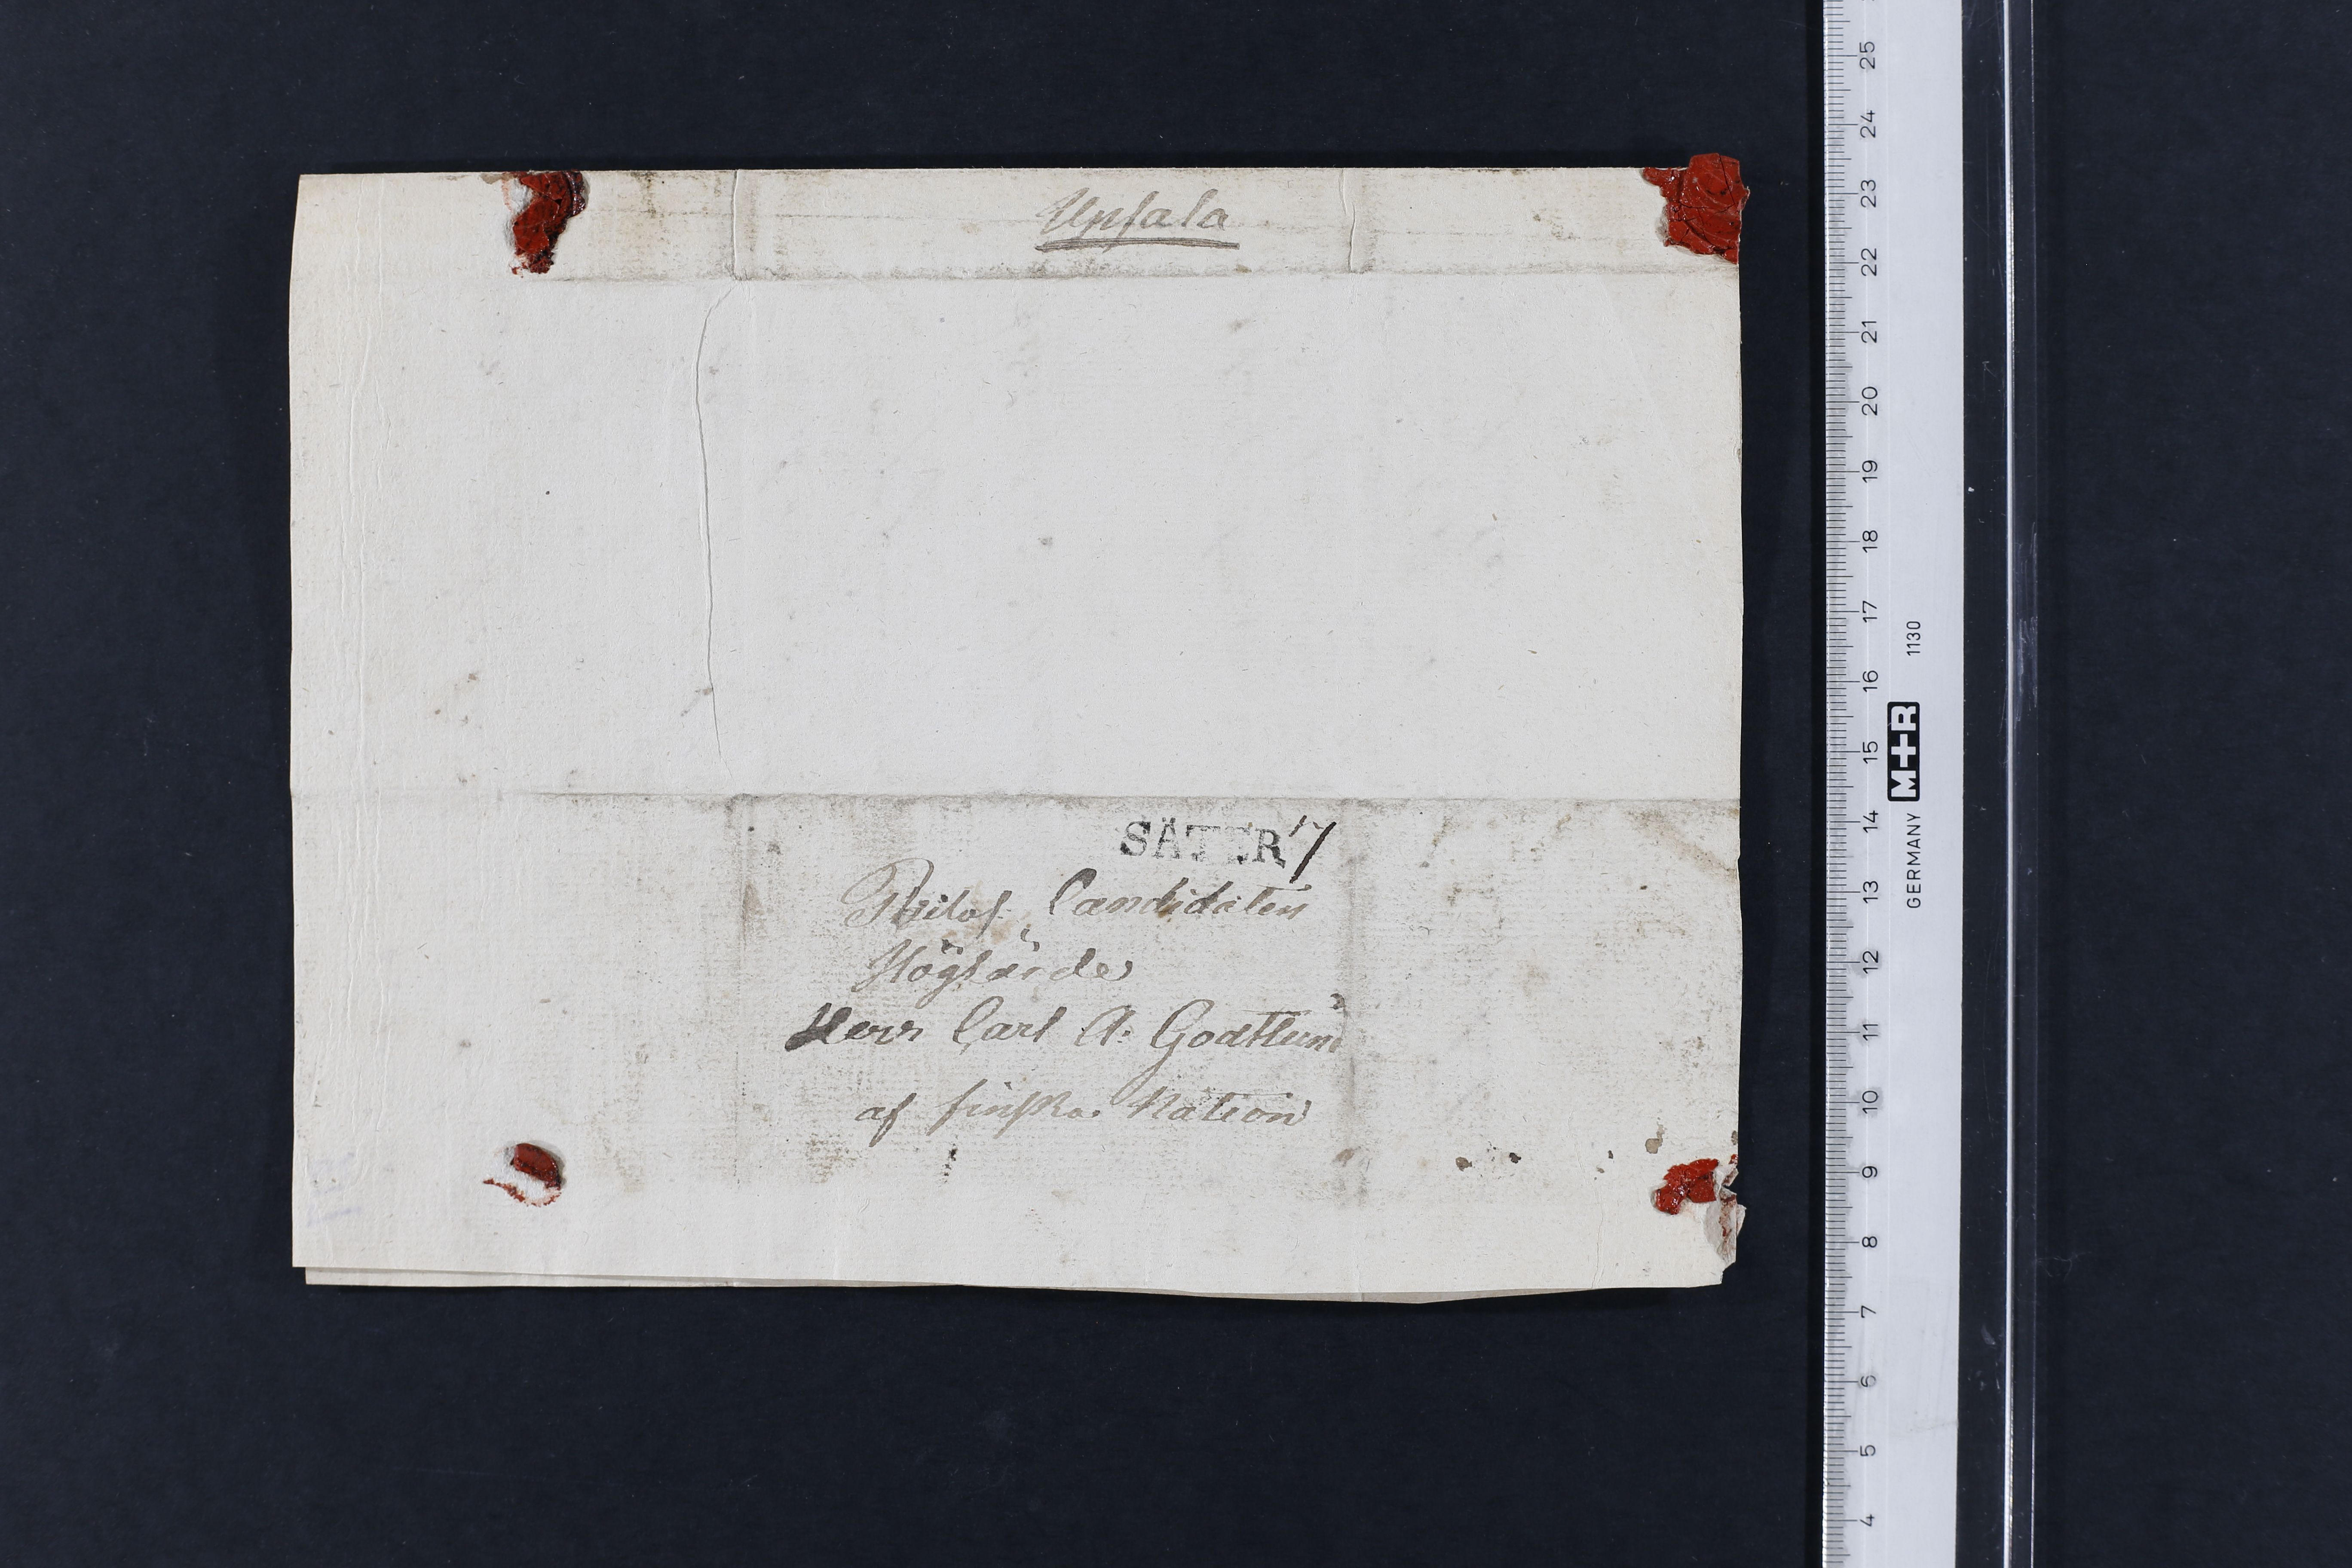 Upsala
SÄTER 17
Philos. Candidaten
Höglärde
Herr Carl A. Godtlund
af finska Nation
25
24
23
22
21
20
19
18
17
16
15
14
13
12
11
10
9
8
7
6
5
4
GERMANY M+R 1130